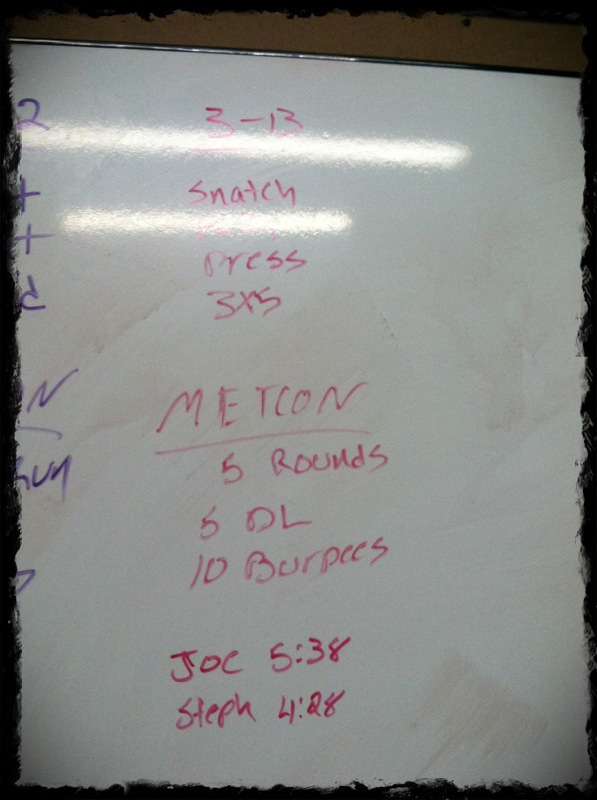 3-13
Snatch
Press
3x5
METCON
5 Rounds
5 DL
10 Burpees
Joe 5:38
Steph 4:28